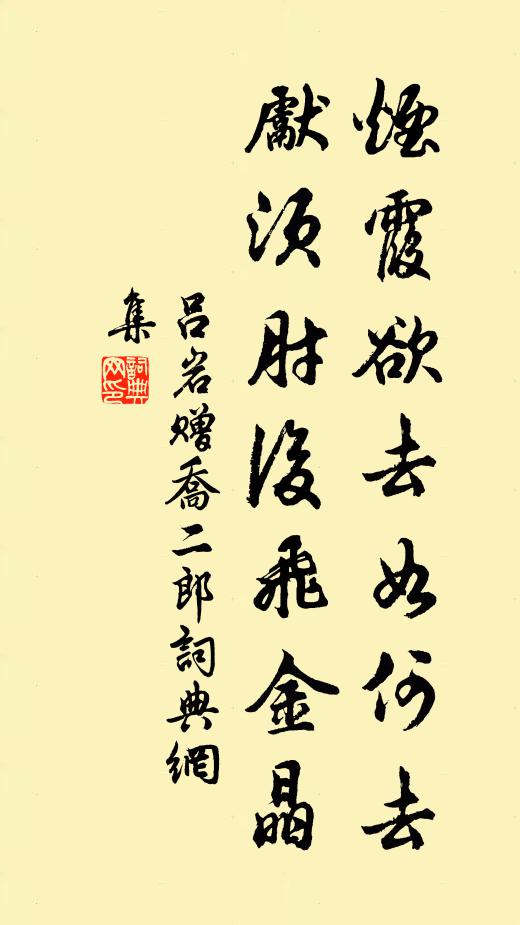 煙霞欲去如何去
獻須肘後飛金晶
呂岩贈喬二郎詞典網
集
詞典
网印